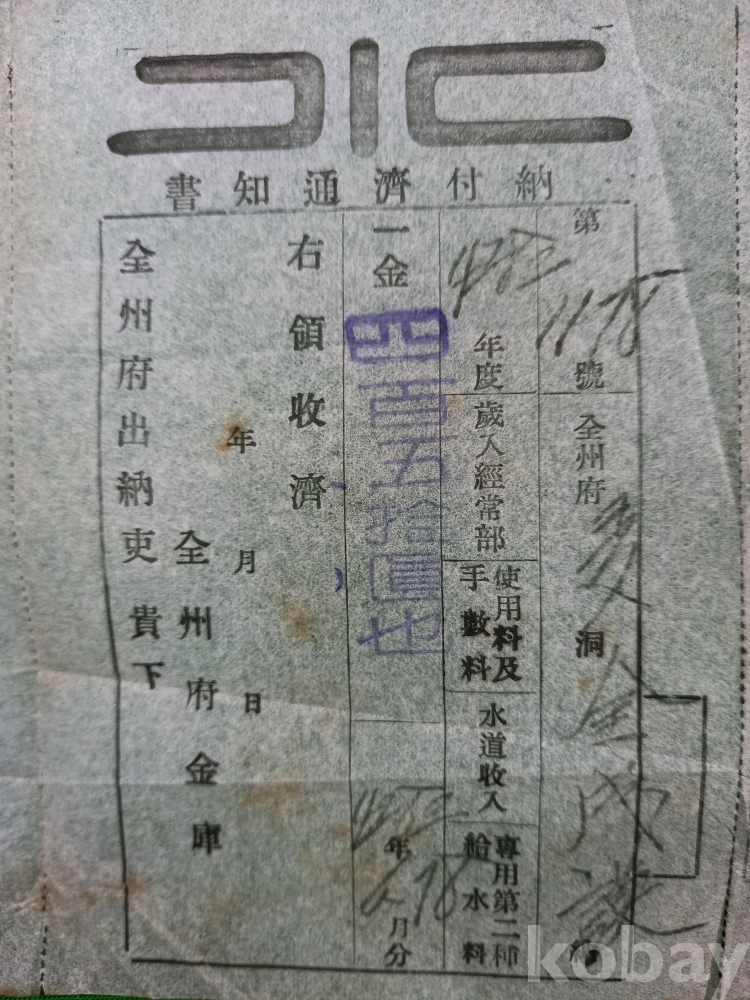 納付濟通知書
第 1178 號
全州府 洞 金
4283 年度
歲入經常部
使用料及
手數料
水道收入
專用第二種
給水料
一金 四百五拾圓也
年 月分
右領收濟
年 月 日
全州府金庫
全州府出納吏 貴下
kobay